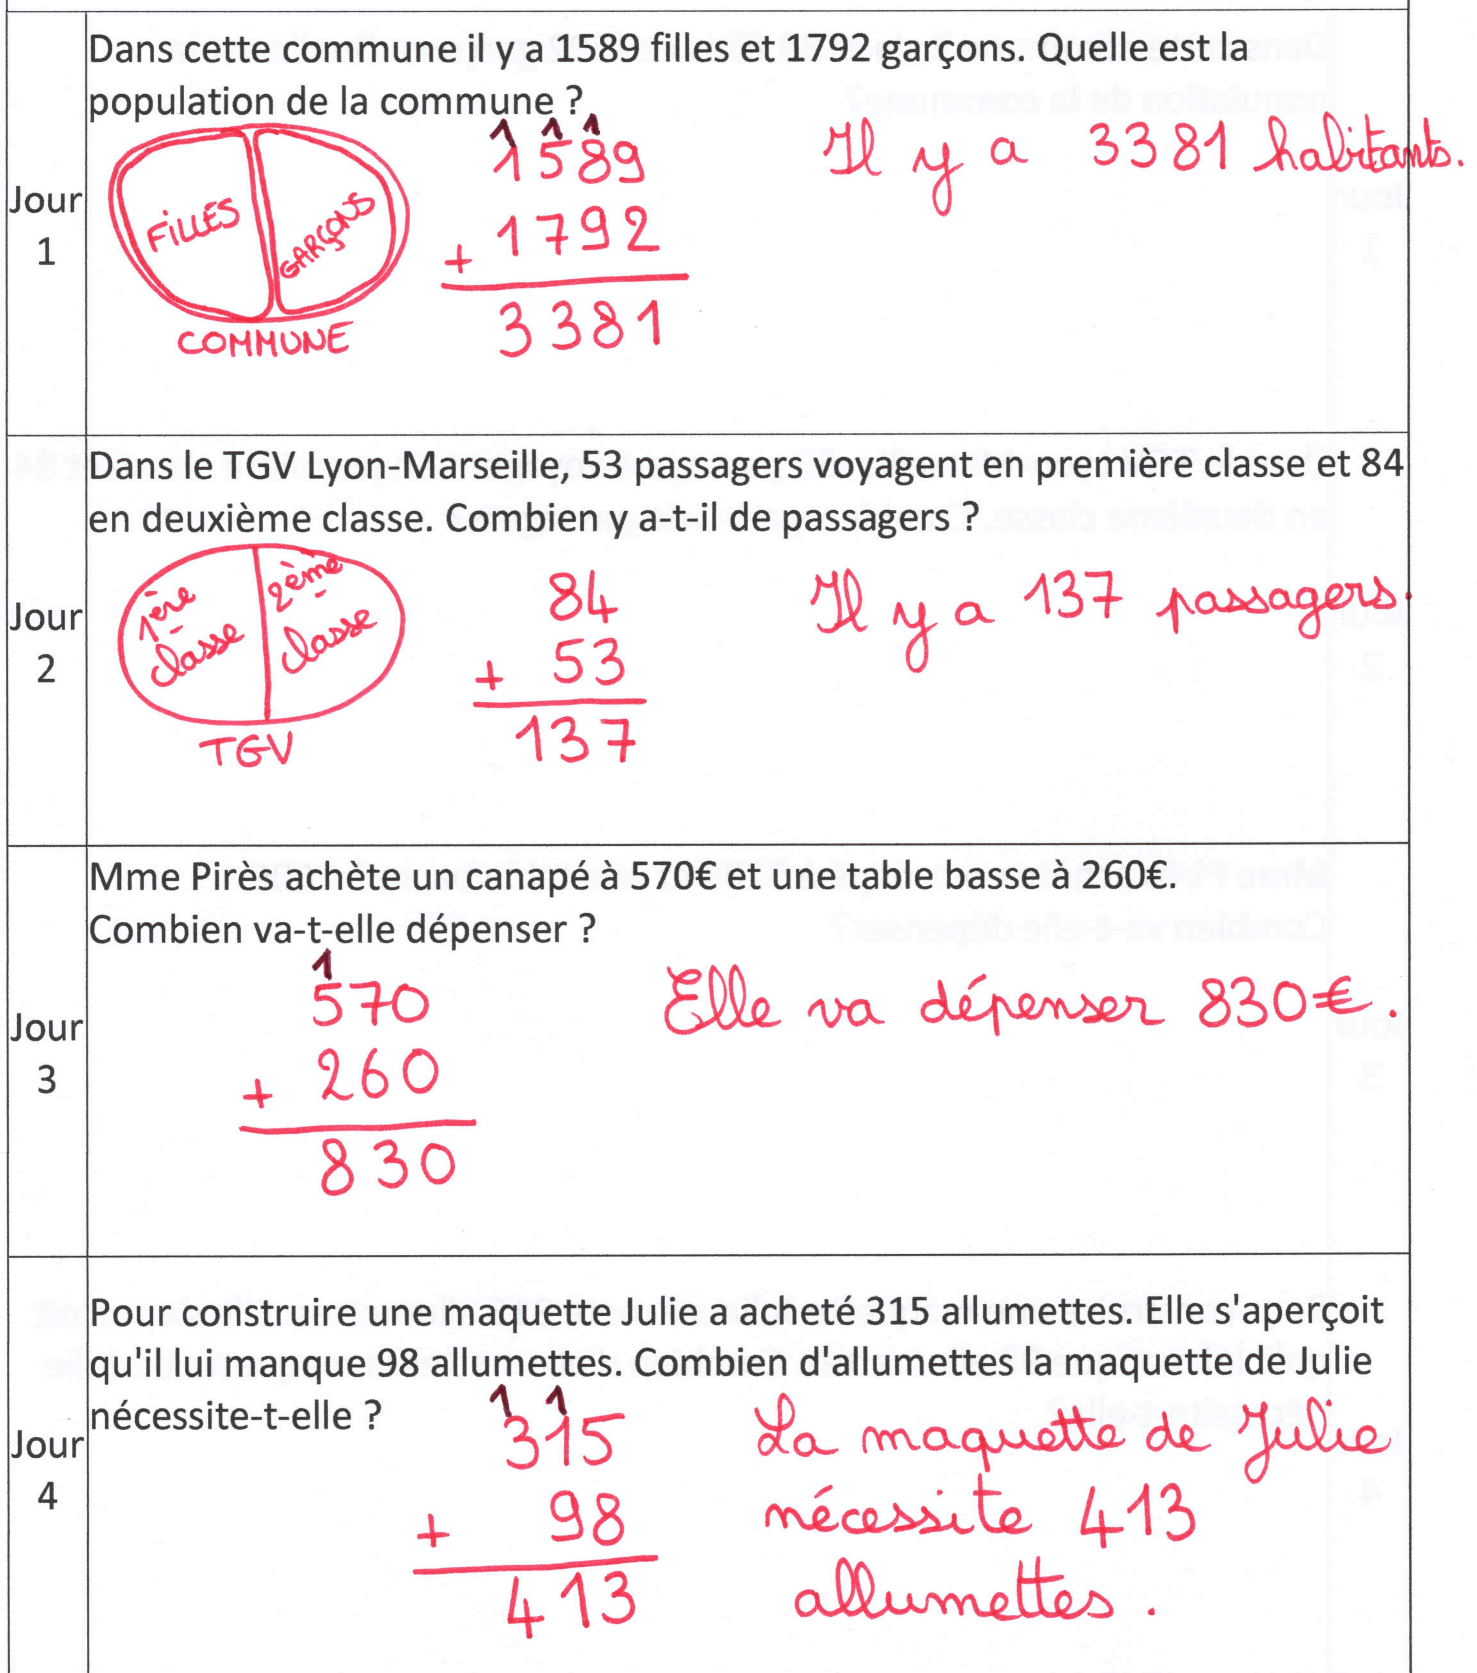 Dans cette commune il y a 1589 filles et 1792 garçons. Quelle est la
population de la commune ?
Jour
1
FILLES
GARÇONS
COMMUNE
1 1 1
1589
+ 1792
3381
Il y a 3381 habitants.
Dans le TGV Lyon-Marseille, 53 passagers voyagent en première classe et 84
en deuxième classe. Combien y a-t-il de passagers ?
Jour
2
1ère
classe
2ème
classe
TGV
84
+ 53
137
Il y a 137 passagers.
Mme Pirès achète un canapé à 570€ et une table basse à 260€.
Combien va-t-elle dépenser ?
Jour
3
1
570
+ 260
830
Elle va dépenser 830€.
Pour construire une maquette Julie a acheté 315 allumettes. Elle s'aperçoit
qu'il lui manque 98 allumettes. Combien d'allumettes la maquette de Julie
nécessite-t-elle ?
Jour
4
1 1
315
+ 98
413
La maquette de Julie
nécessite 413
allumettes.